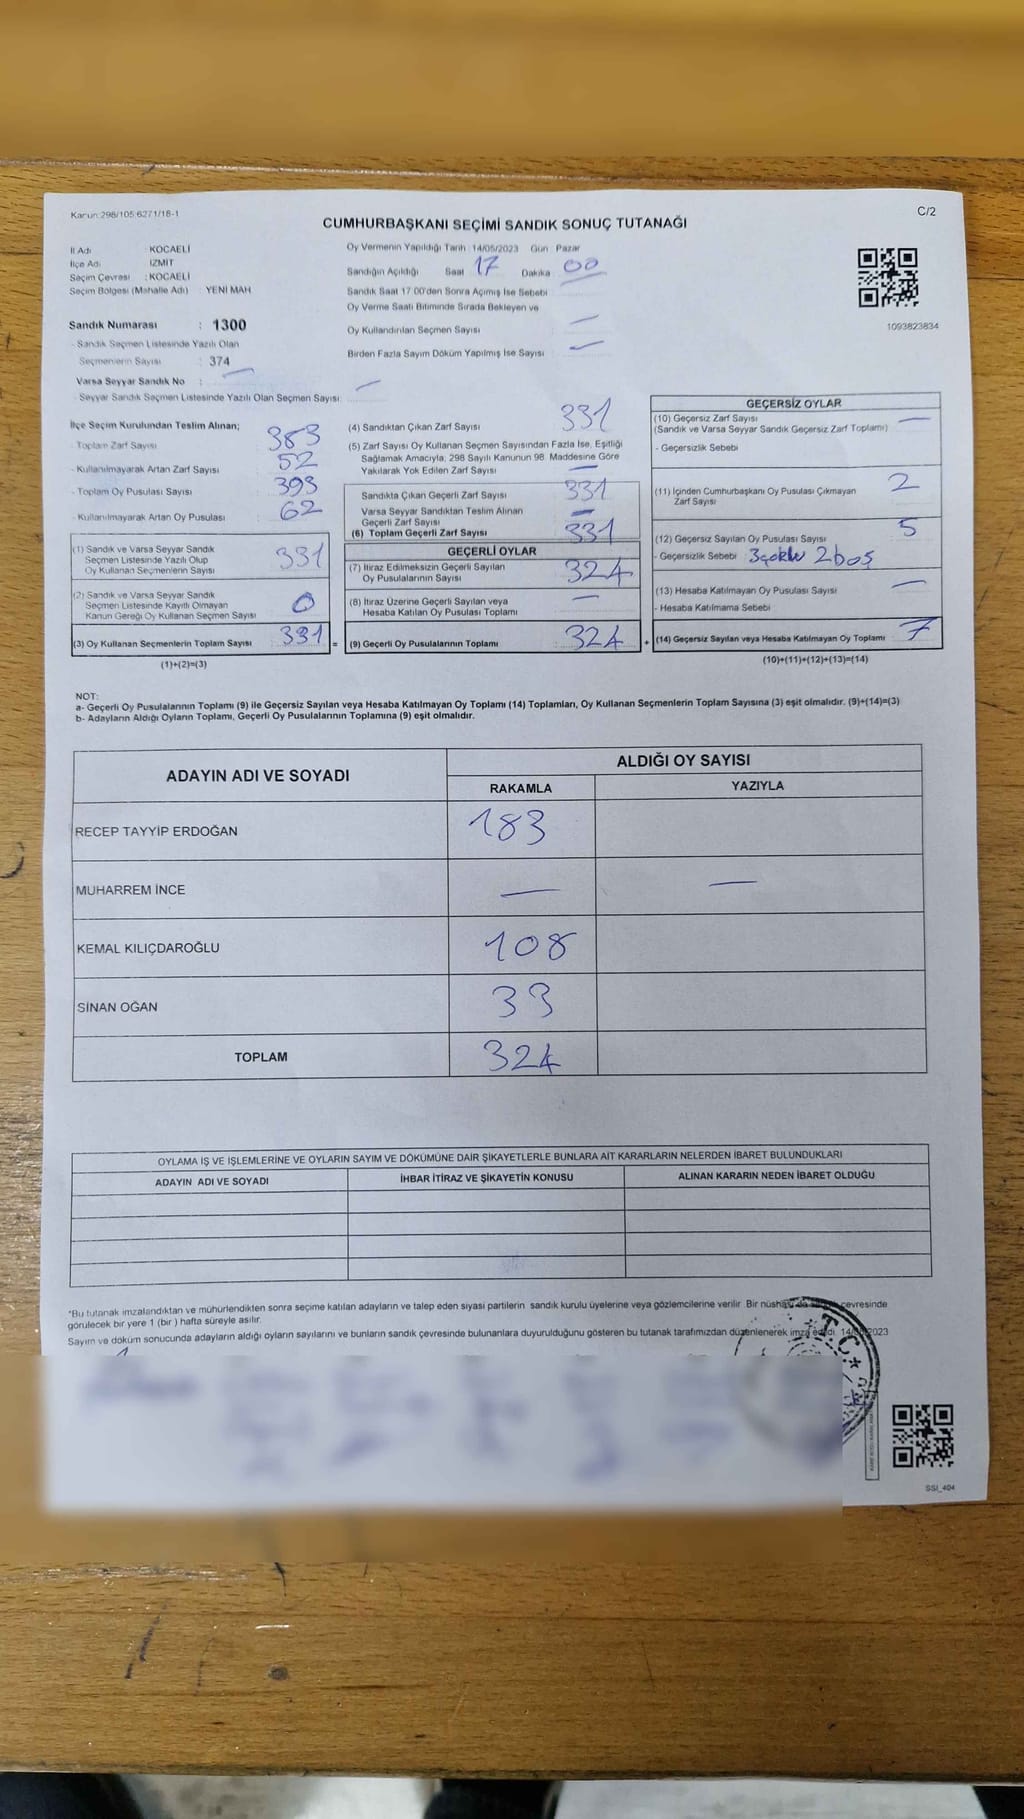 Kanun:298/105;6271/18-1
C/2
CUMHURBAŞKANI SEÇİMİ SANDIK SONUÇ TUTANAĞI
İl Adı KOCAELİ
İlçe Adı İZMİT
Seçim Çevresi : KOCAELİ
Seçim Bölgesi (Mahalle Adı) : YENİ MAH
Sandık Numarası : 1300
- Sandık Seçmen Listesinde Yazılı Olan
Seçmenlerin Sayısı : 374
Varsa Seyyar Sandık No : —
- Seyyar Sandık Seçmen Listesinde Yazılı Olan Seçmen Sayısı: —
Oy Vermenin Yapıldığı Tarih : 14/05/2023 Gün : Pazar
Sandığın Açıldığı Saat 17 Dakika 00
Sandık Saat 17.00'den Sonra Açımış İse Sebebi
Oy Verme Saati Bitiminde Sırada Bekleyen ve
Oy Kullandırılan Seçmen Sayısı —
Birden Fazla Sayım Döküm Yapılmış İse Sayısı —
1093823834
İlçe Seçim Kurulundan Teslim Alınan;
- Toplam Zarf Sayısı 383
- Kullanılmayarak Artan Zarf Sayısı 52
- Toplam Oy Pusulası Sayısı 393
- Kullanılmayarak Artan Oy Pusulası 62
(1) Sandık ve Varsa Seyyar Sandık
Seçmen Listesinde Yazılı Olup
Oy Kullanan Seçmenlerin Sayısı 331
(2) Sandık ve Varsa Seyyar Sandık
Seçmen Listesinde Kayıtlı Olmayan
Kanun Gereği Oy Kullanan Seçmen Sayısı 0
(3) Oy Kullanan Seçmenlerin Toplam Sayısı 331 =
(1)+(2)=(3)
(4) Sandıktan Çıkan Zarf Sayısı 331
(5) Zarf Sayısı Oy Kullanan Seçmen Sayısından Fazla İse, Eşitliği
Sağlamak Amacıyla; 298 Sayılı Kanunun 98. Maddesine Göre
Yakılarak Yok Edilen Zarf Sayısı —
Sandıkta Çıkan Geçerli Zarf Sayısı 331
Varsa Seyyar Sandıktan Teslim Alınan
Geçerli Zarf Sayısı —
(6) Toplam Geçerli Zarf Sayısı 331
GEÇERLİ OYLAR
(7) İtiraz Edilmeksizin Geçerli Sayılan
Oy Pusulalarının Sayısı 324
(8) İtiraz Üzerine Geçerli Sayılan veya
Hesaba Katılan Oy Pusulası Toplamı —
(9) Geçerli Oy Pusulalarının Toplamı 324 +
GEÇERSİZ OYLAR
(10) Geçersiz Zarf Sayısı —
(Sandık ve Varsa Seyyar Sandık Geçersiz Zarf Toplamı)
- Geçersizlik Sebebi
(11) İçinden Cumhurbaşkanı Oy Pusulası Çıkmayan
Zarf Sayısı 2
(12) Geçersiz Sayılan Oy Pusulası Sayısı 5
- Geçersizlik Sebebi 3çoklu 2boş
(13) Hesaba Katılmayan Oy Pusulası Sayısı —
- Hesaba Katılmama Sebebi
(14) Geçersiz Sayılan veya Hesaba Katılmayan Oy Toplamı 7
(10)+(11)+(12)+(13)=(14)
NOT:
a- Geçerli Oy Pusulalarının Toplamı (9) ile Geçersiz Sayılan veya Hesaba Katılmayan Oy Toplamı (14) Toplamları, Oy Kullanan Seçmenlerin Toplam Sayısına (3) eşit olmalıdır. (9)+(14)=(3)
b- Adayların Aldığı Oyların Toplamı, Geçerli Oy Pusulalarının Toplamına (9) eşit olmalıdır.
ADAYIN ADI VE SOYADI
ALDIĞI OY SAYISI
RAKAMLA YAZIYLA
RECEP TAYYİP ERDOĞAN 183
MUHARREM İNCE — —
KEMAL KILIÇDAROĞLU 108
SİNAN OĞAN 33
TOPLAM 324
OYLAMA İŞ VE İŞLEMLERİNE VE OYLARIN SAYIM VE DÖKÜMÜNE DAİR ŞİKAYETLERLE BUNLARA AİT KARARLARIN NELERDEN İBARET BULUNDUKLARI
ADAYIN ADI VE SOYADI İHBAR İTİRAZ VE ŞİKAYETİN KONUSU ALINAN KARARIN NEDEN İBARET OLDUĞU
*Bu tutanak imzalandıktan ve mühürlendikten sonra seçime katılan adayların ve talep eden siyasi partilerin sandık kurulu üyelerine veya gözlemcilerine verilir. Bir nüshası da çevresinde
görülecek bir yere 1 (bir ) hafta süreyle asılır.
Sayım ve döküm sonucunda adayların aldığı oyların sayılarını ve bunların sandık çevresinde bulunanlara duyurulduğunu gösteren bu tutanak tarafımızdan düzenlenerek imza edildi. 14/05/2023
T.C*
SSI_404